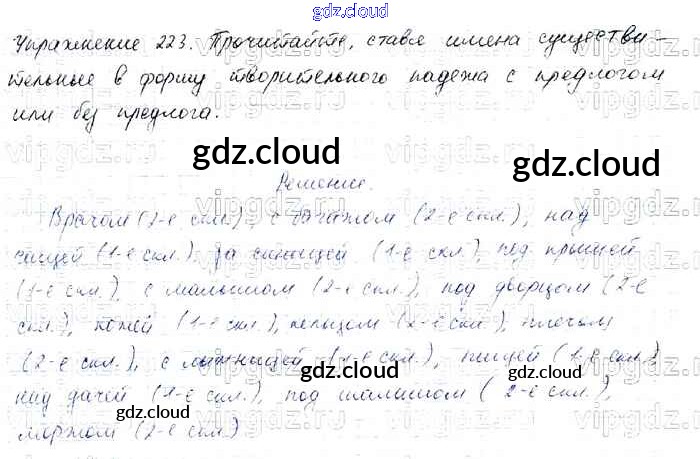 gdz.cloud
Упражнение 223. Прочитайте, ставя имена существи-
тельные в форму творительного падежа с предлогом
или без предлога.
gdz.cloud
gdz.cloud
Решение.
Врачом (2-е скл.), с багажом (2-е скл.), над
(1-е скл.), за синицей (1-е скл.), под крышей
(1-е скл.), с малышом (2-е скл.), под дворцом (2-е
скл.), кожей (1-е скл.), кольцом (2-е скл.), плечом
(2-е скл.), с (1-е скл.), пищей (1-е скл.)
над дачей (1-е скл.), под шалашом (2-е скл.),
gdz.cloud
gdz.cloud
моржом (2-е скл.)
gdz.cloud